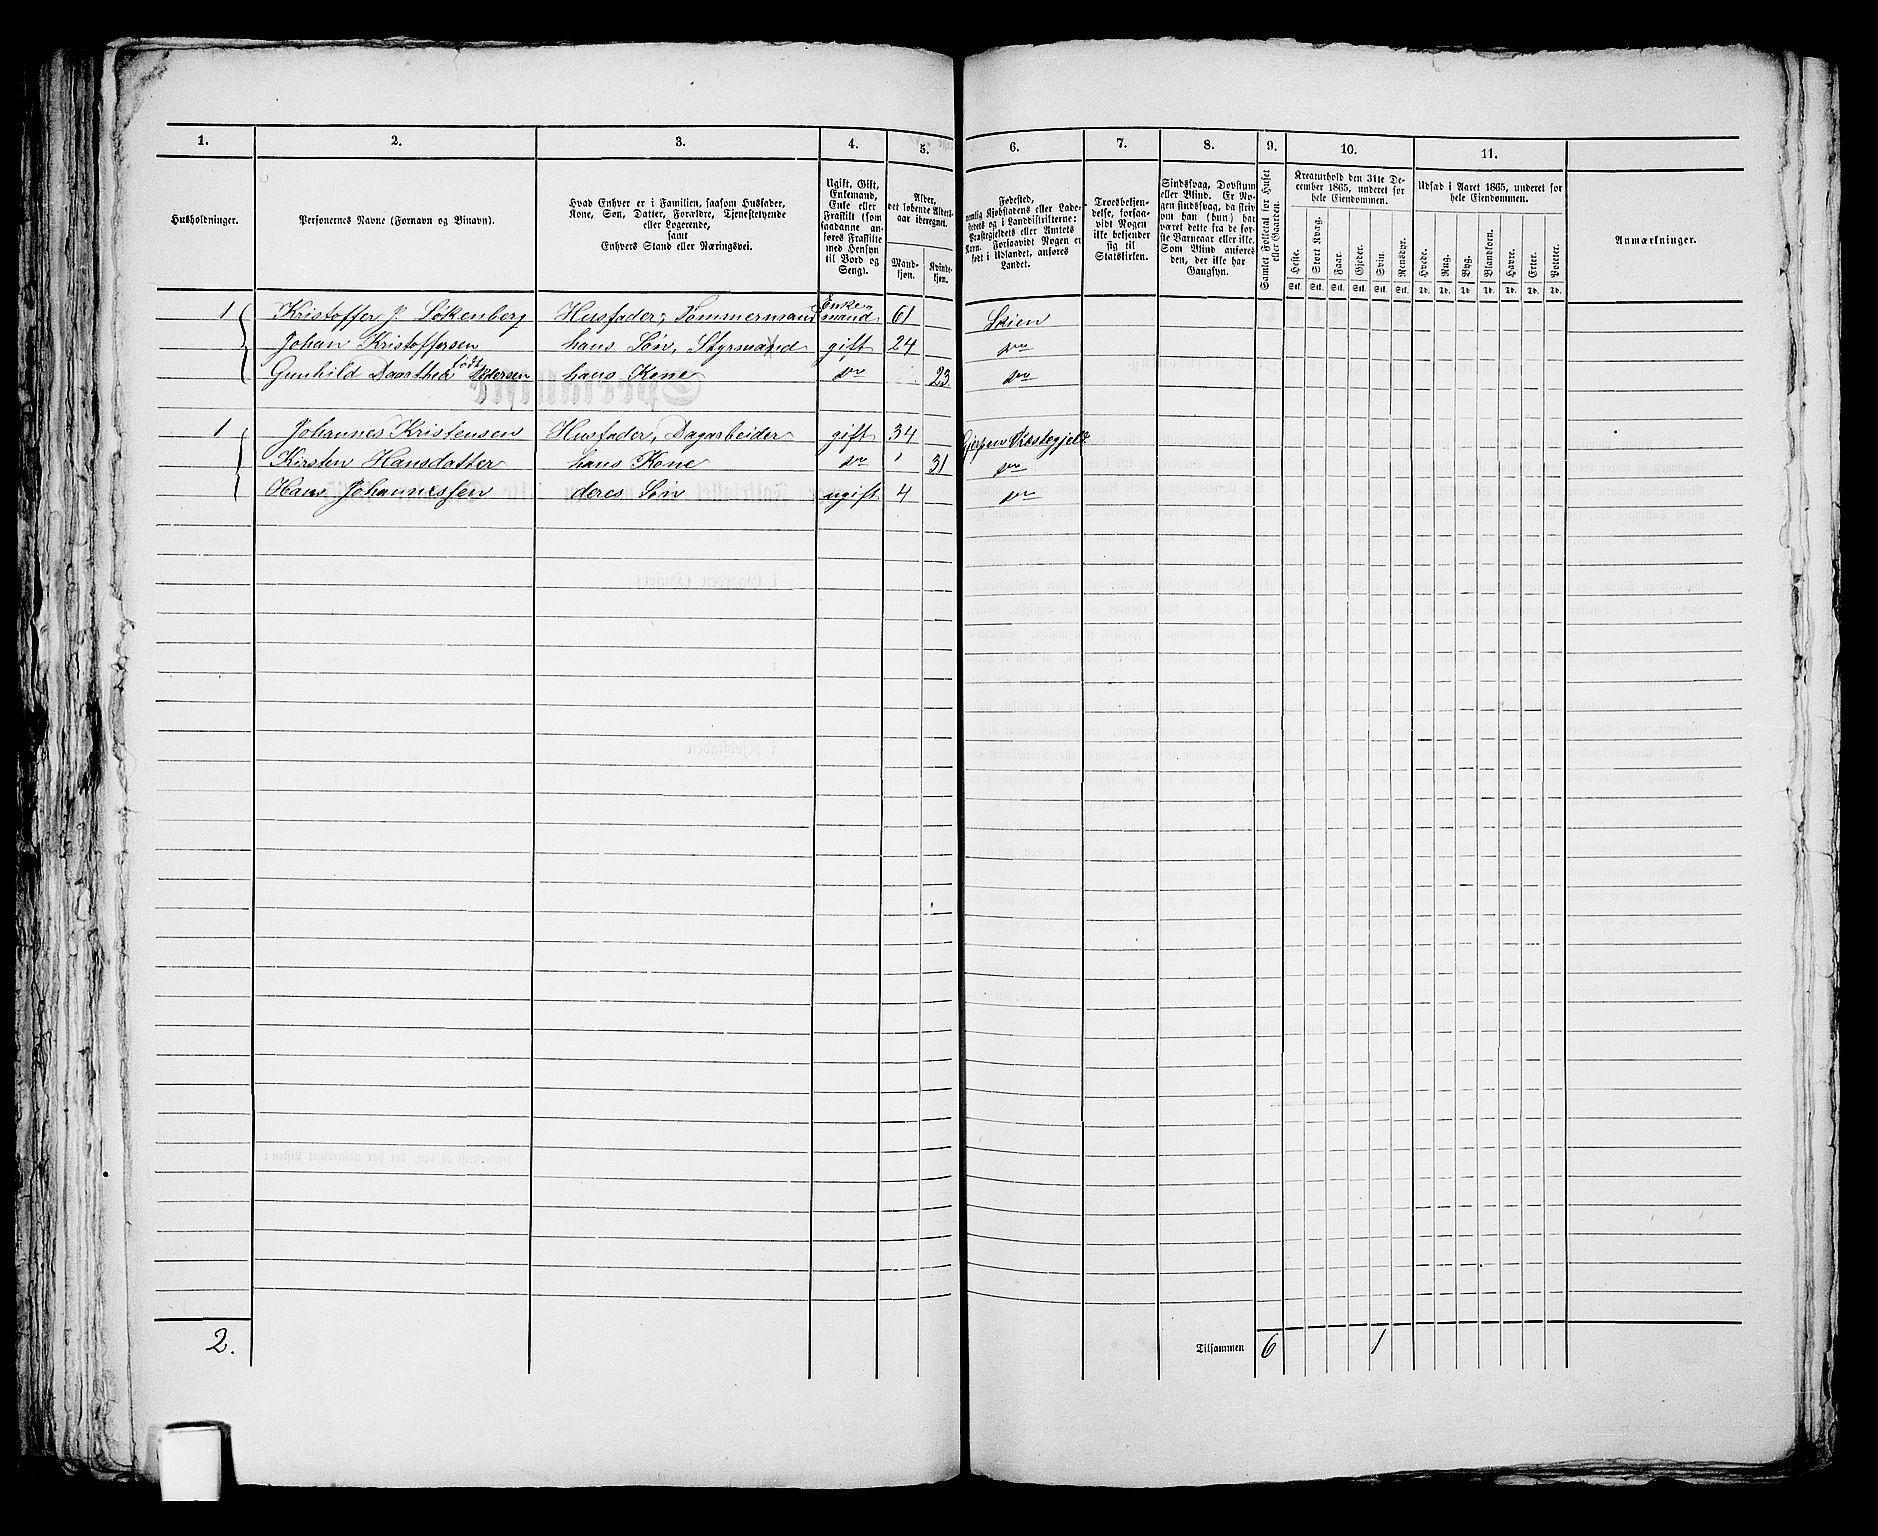 1. 2. 3. 4. 5. 6. 7. 8. 9. 10. 11.
Husholdninger.
Personernes Navne (Fornavn og Binavn).
Hvad Enhver er i Familien, saasom Husfader,
Kone, Søn, Datter, Forældre, Tjenestetyende
eller Logerende,
samt
Enhvers Stand eller Næringsvei.
Ugift, Gift,
Enkemand,
Enke eller
Fraskilt (som
saadanne an-
føres Fraskilte
med Hensyn
til Bord og
Seng).
Alder,
det løbende Alders-
aar iberegnet.
Mand-
kjøn.
Kvinde-
kjøn.
Fødested,
nemlig Kjøbstadens eller Lade-
stedets og i Landdistrikterne:
Præstegjeldets eller Amtets
Navn. Forsaavidt Nogen er
født i Udlandet, anføres
Landet.
Troesbekjen-
delse, forsaa-
vidt Nogen
ikke bekjender
sig til
Statskirken.
Sindssvag, Døvstum
eller Blind. Er No-
gen sindssvag, da skriv
om han (hun) har
været dette fra de før-
ste Barneaar eller ikke.
Som Blind anføres
den, der ikke har
Gangsyn.
Samlet Folketal for Huset
eller Gaarden.
Kreaturhold den 31te De-
cember 1865, underet for
hele Eiendommen.
Heste. Stort Kvæg. Faar. Gjeder. Svin. Rensdyr.
Stk. Stk. Stk. Stk. Stk. Stk.
Udsæd i Aaret 1865, underet for
hele Eiendommen.
Hvede. Rug. Byg. Blandkorn. Havre. Erter. Poteter.
Td. Td. Td. Td. Td. Td. Td.
Anmærkninger.
1 Kristoffer J. Lökenberg Husfader, Tömmermand Enke-mand 61 Skien
Johan Kristoffersen hans Sön, Styrmand gift 24 do
Gunhild Daarthea född Pedersen hans Kone do 23 do
1 Johannes Kristensen Husfader, Dagarbeider gift 34 Gjerpen Præstegjeld
Kirsten Hansdatter hans Kone do 31 do
Hans Johannessen deres Sön ugift 4 do
2. Tilsammen 6 1